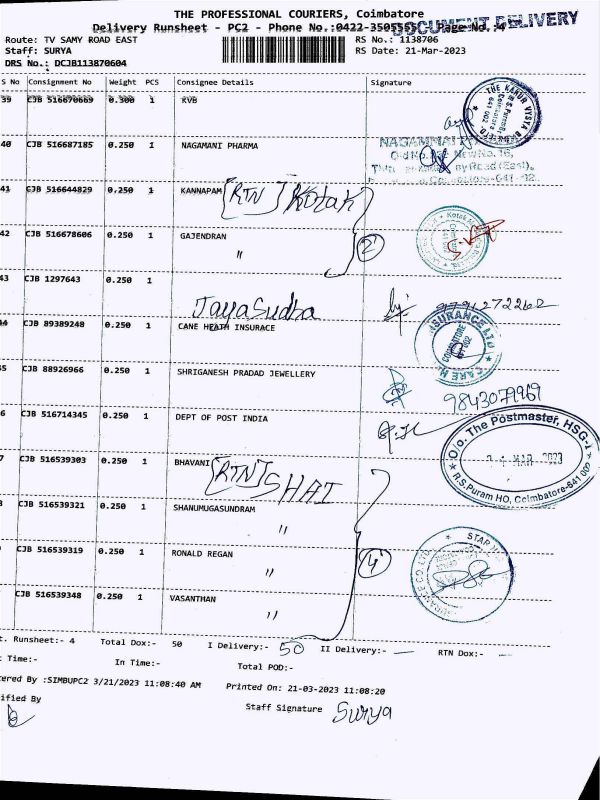 THE PROFESSIONAL COURIERS, Coimbatore
Delivery Runsheet - PC2 - Phone No.:0422-3505555 Page No.:4
DOCUMENT DELIVERY
Route: TV SAMY ROAD EAST RS No.: 1138706
Staff: SURYA RS Date: 21-Mar-2023
DRS No.: DCJB113870604
S No Consignment No Weight PCS Consignee Details Signature
39 CJB 516670669 0.300 1 KVB
THE KARUR VYSYA BANK LTD.
Coimbatore
641 002
40 CJB 516687185 0.250 1 NAGAMANI PHARMA
NAGAMMAI
41 CJB 516644829 0.250 1 KANNAPAM RTN Kotak
42 CJB 516678606 0.250 1 GAJENDRAN
" 2
43 CJB 1297643 0.250 1
JayaSudha
44 CJB 89389248 0.250 1 CANE HEATH INSURACE
INSURANCE LTD
5 CJB 88926966 0.250 1 SHRIGANESH PRADAD JEWELLERY
9843079969
6 CJB 516714345 0.250 1 DEPT OF POST INDIA
O/o. The Postmaster, HSG-I
MAR 2023
R.S.Puram HO, Coimbatore-641 002
7 CJB 516539303 0.250 1 BHAVANI RTN SHAI
8 CJB 516539321 0.250 1 SHANUMUGASUNDRAM
"
CJB 516539319 0.250 1 RONALD REGAN
" 4
CJB 516539348 0.250 1 VASANTHAN
"
t. Runsheet:- 4 Total Dox:- 50 I Delivery:- 50 II Delivery:- — RTN Dox:- —
Time:- In Time:- Total POD:-
tered By :SIMBUPC2 3/21/2023 11:08:40 AM Printed On: 21-03-2023 11:08:20
ified By Staff Signature Surya